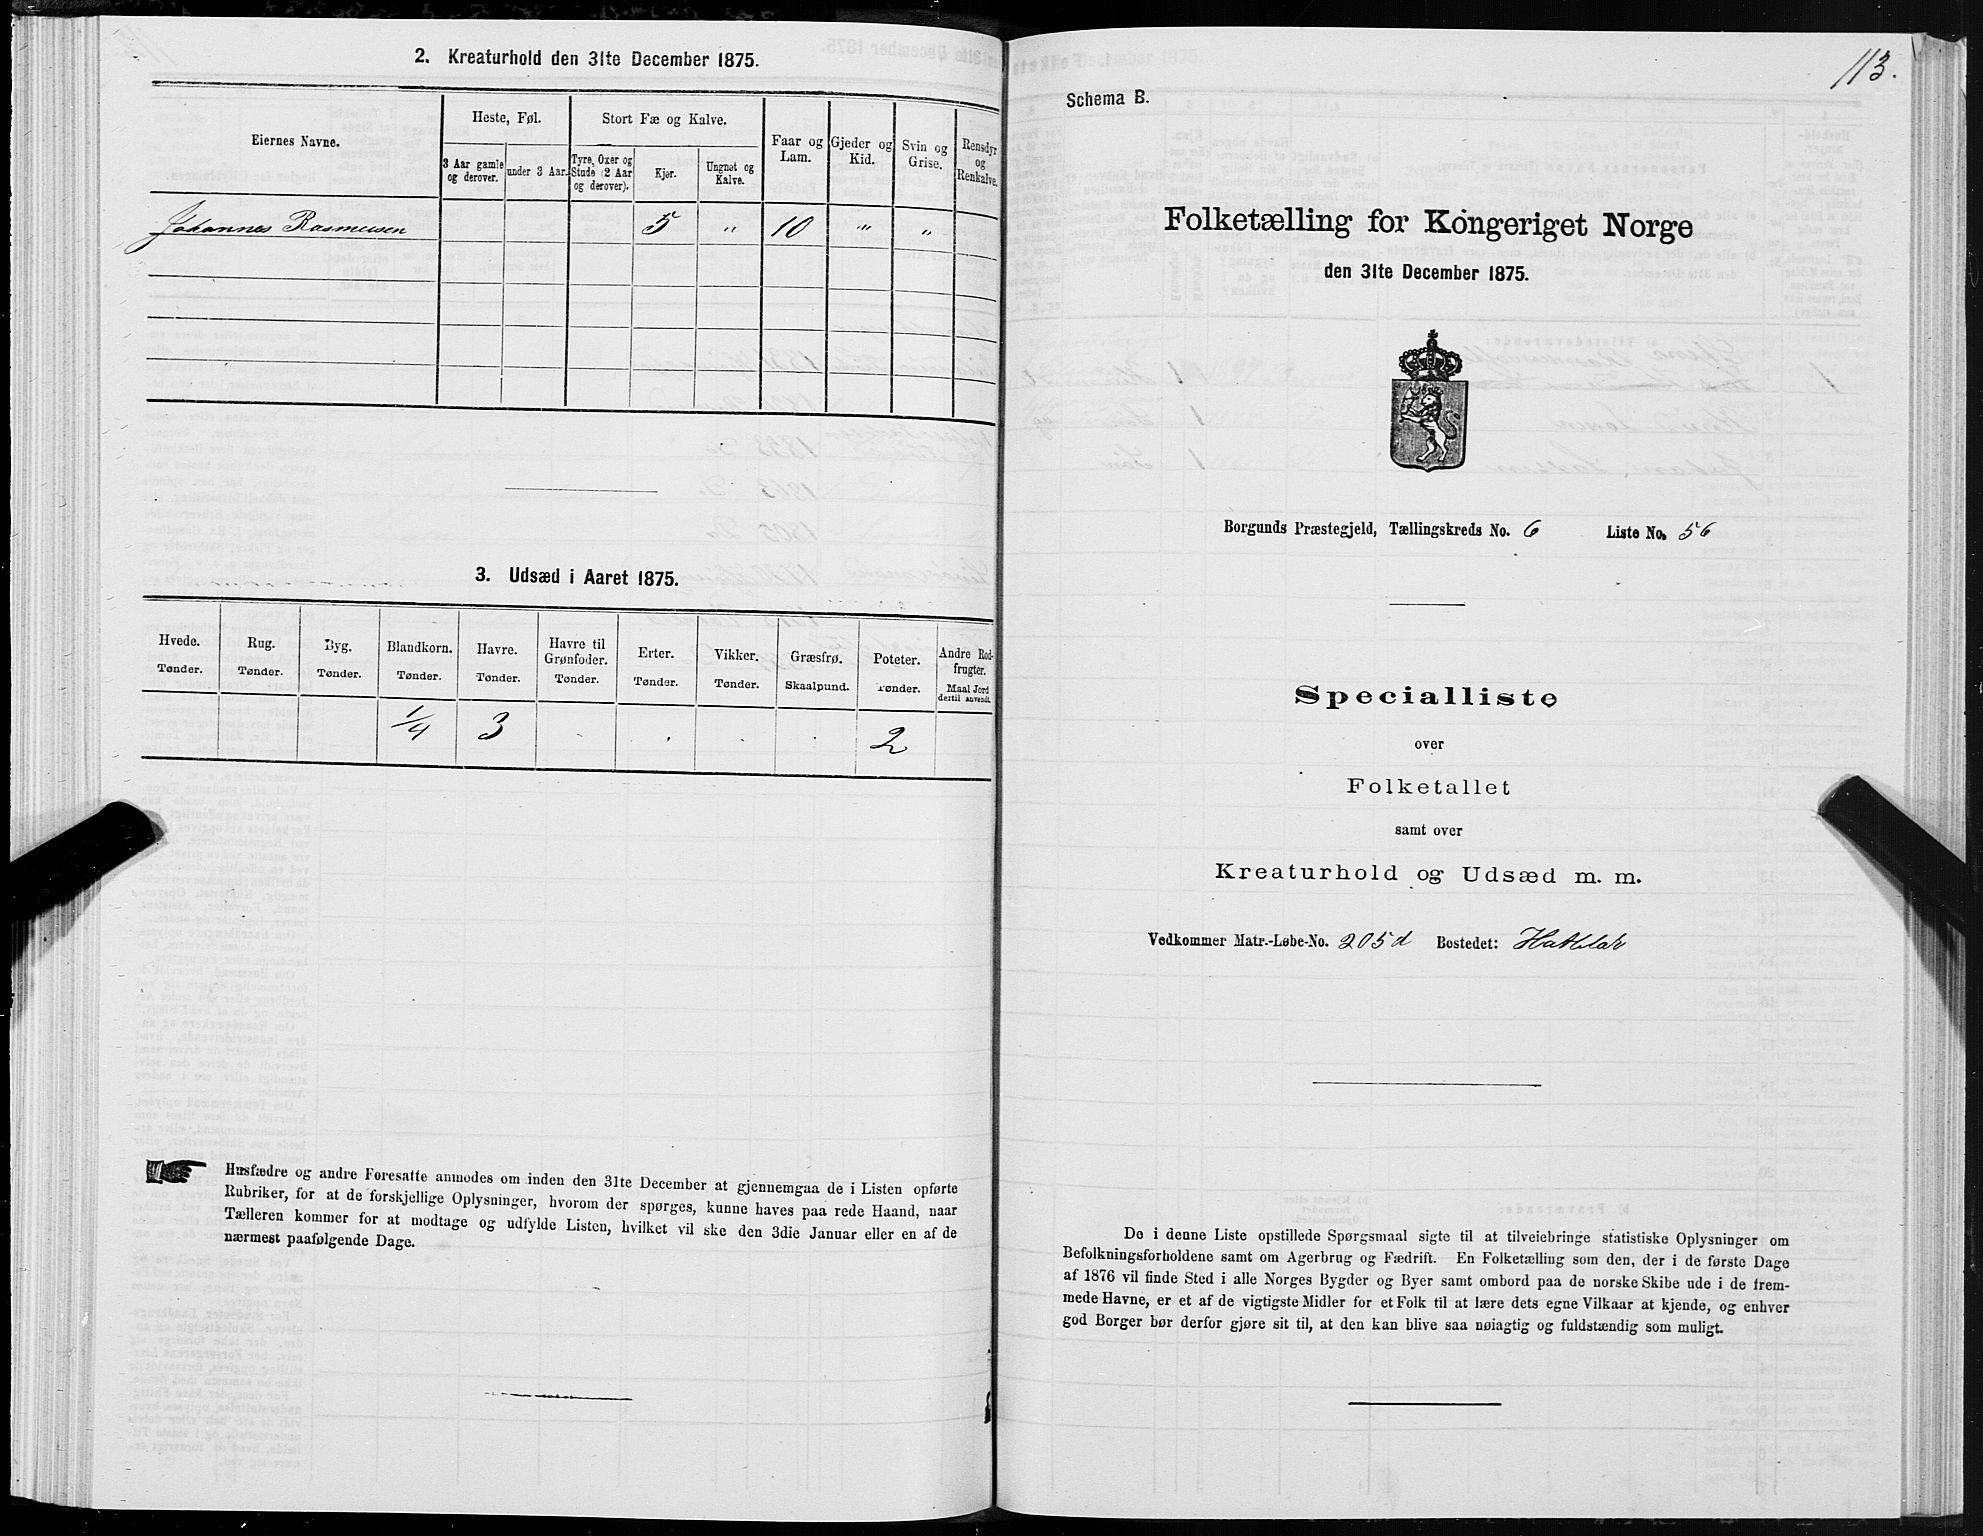 2. Kreaturhold den 31te December 1875.
Eiernes Navne.
Heste, Føl.
Stort Fæ og Kalve.
Faar og Lam.
Gjeder og Kid.
Svin og Grise.
Rensdyr og Renkalve.
3 Aar gamle og derover.
under 3 Aar.
Tyre, Oxer og Stude (2 Aar og derover).
Kjør.
Ungnøt og Kalve.
Johannes Rasmussen 5 " 10 " "
3. Udsæd i Aaret 1875.
Hvede. Rug. Byg. Blandkorn. Havre. Havre til Grønfoder. Erter. Vikker. Græsfrø. Poteter. Andre Rodfrugter.
Tønder. Tønder. Tønder. Tønder. Tønder. Tønder. Tønder. Tønder. Skaalpund. Tønder. Maal Jord dertil anvendt.
1/4 3 . . . . 2
Husfædre og andre Foresatte anmodes om inden den 31te December at gjennemgaa de i Listen opførte
Rubriker, for at de forskjellige Oplysninger, hvorom der spørges, kunne haves paa rede Haand, naar
Tælleren kommer for at modtage og udfylde Listen, hvilket vil ske den 3die Januar eller en af de
nærmest paafølgende Dage.
113.
Schema B.
Folketælling for Kongeriget Norge
den 31te December 1875.
Borgunds Præstegjeld, Tællingskreds No. 6 Liste No. 56
Specialliste
over
Folketallet
samt over
Kreaturhold og Udsæd m. m.
Vedkommer Matr.-Løbe-No. 205d Bostedet: Hatlelar
De i denne Liste opstillede Spørgsmaal sigte til at tilveiebringe statistiske Oplysninger om
Befolkningsforholdene samt om Agerbrug og Fædrift. En Folketælling som den, der i de første Dage
af 1876 vil finde Sted i alle Norges Bygder og Byer samt ombord paa de norske Skibe ude i de frem-
mede Havne, er et af de vigtigste Midler for et Folk til at lære dets egne Vilkaar at kjende, og enhver
god Borger bør derfor gjøre sit til, at den kan blive saa nøiagtig og fuldstændig som muligt.